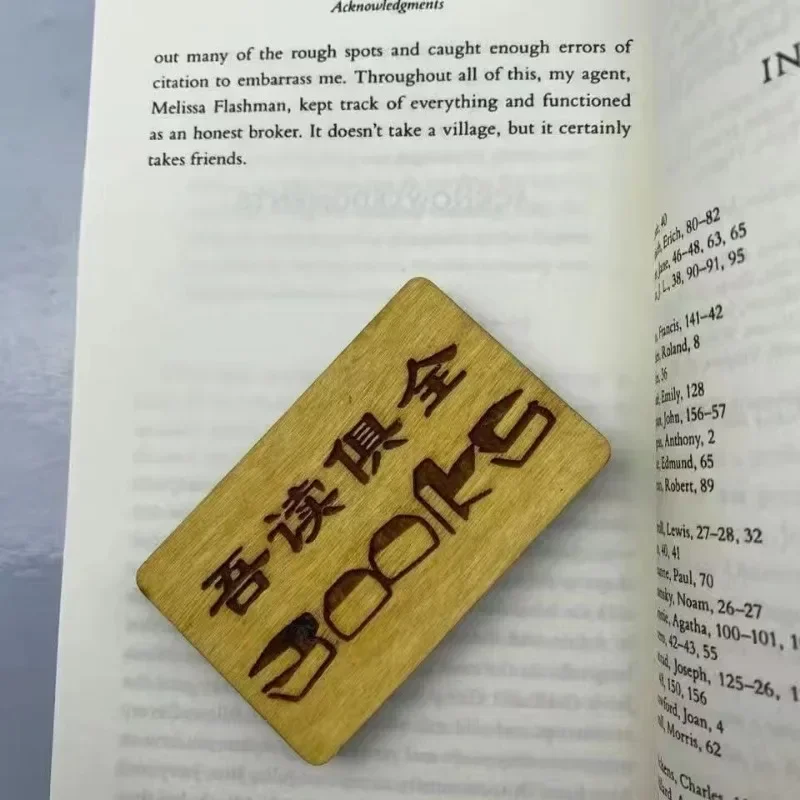 Acknowledgments
out many of the rough spots and caught enough errors of
citation to embarrass me. Throughout all of this, my agent,
Melissa Flashman, kept track of everything and functioned
as an honest broker. It doesn't take a village, but it certainly
takes friends.
吾读俱全
Books
IN
40
Erich, 80–82
46–48, 63, 65
J. L., 38, 90–91, 95
Francis, 141–42
Roland, 8
36
Emily, 128
John, 156–57
Anthony, 2
Edmund, 65
Robert, 89
Lewis, 27–28, 32
40, 41
Paul, 70
Noam, 26–27
Agatha, 100–101,
42–43, 55
Joseph, 125–26,
150, 156
Joan, 4
Morris, 62
Charles,